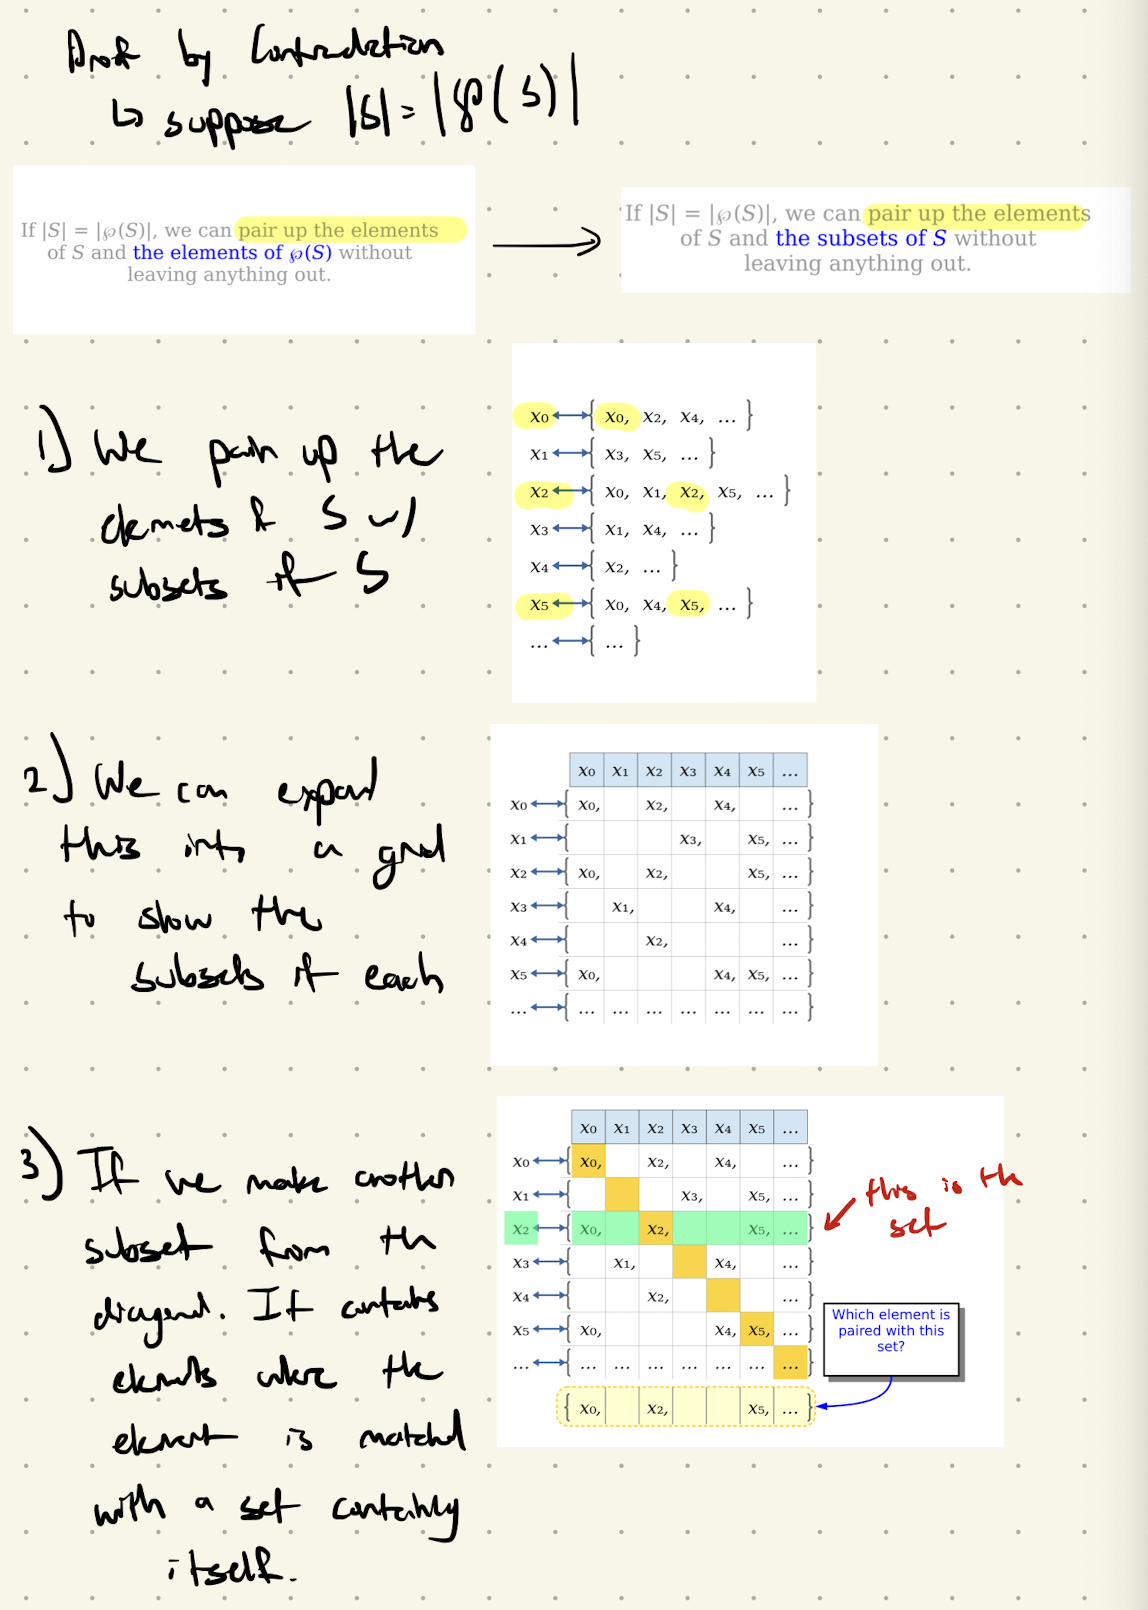 Proof by Contradiction
↳ suppose |S| = |℘(S)|
If |S| = |℘(S)|, we can pair up the elements
of S and the elements of ℘(S) without
leaving anything out.
If |S| = |℘(S)|, we can pair up the elements
of S and the subsets of S without
leaving anything out.
1) We pair up the
elemets of S w/
subsets of S
x₀ ↔ { x₀, x₂, x₄, … }
x₁ ↔ { x₃, x₅, … }
x₂ ↔ { x₀, x₁, x₂, x₅, … }
x₃ ↔ { x₁, x₄, … }
x₄ ↔ { x₂, … }
x₅ ↔ { x₀, x₄, x₅, … }
… ↔ { … }
2) We can expand
this into a grid
to show the
subsets of each
x₀ x₁ x₂ x₃ x₄ x₅ …
x₀ ↔ { x₀, x₂, x₄, … }
x₁ ↔ { x₃, x₅, … }
x₂ ↔ { x₀, x₂, x₅, … }
x₃ ↔ { x₁, x₄, … }
x₄ ↔ { x₂, … }
x₅ ↔ { x₀, x₄, x₅, … }
… ↔ { … … … … … … … }
3) If we make another
subset from th
diagonal. It contains
elements where the
element is matched
with a set containing
itself.
x₀ x₁ x₂ x₃ x₄ x₅ …
x₀ ↔ { x₀, x₂, x₄, … }
x₁ ↔ { x₃, x₅, … }
x₂ ↔ { x₀, x₂, x₅, … }
x₃ ↔ { x₁, x₄, … }
x₄ ↔ { x₂, … }
x₅ ↔ { x₀, x₄, x₅, … }
… ↔ { … … … … … … … }
{ x₀, x₂, x₅, … }
this is th
set
Which element is
paired with this
set?